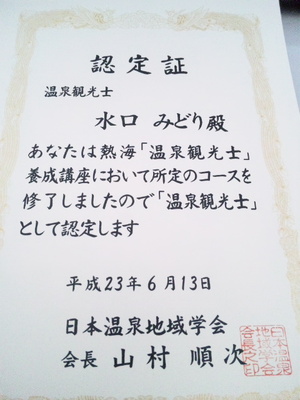 認定証
温泉観光士
水口 みどり殿
あなたは熱海「温泉観光士」
養成講座において所定のコースを
修了しましたので「温泉観光士」
として認定します
平成23年6月13日
日本温泉地域学会
会長 山村 順次
日本温泉
地域学会
会長之印